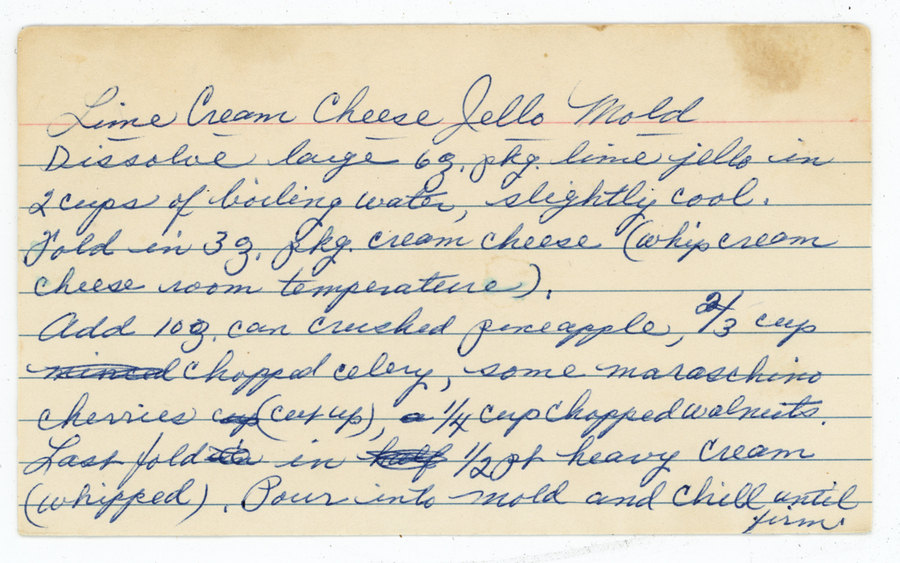 Lime Cream Cheese Jello Mold
Dissolve large 6 oz. pkg. lime jello in
2 cups of boiling water, slightly cool.
Fold in 3 oz. pkg. cream cheese (whip cream
cheese room temperature).
Add 10 oz. can crushed pineapple, 2/3 cup
minced chopped celery, some maraschino
cherries cup (cut up), a 1/4 cup chopped walnuts.
Last fold in half 1/2 pt heavy cream
(whipped). Pour into mold and chill until
firm.